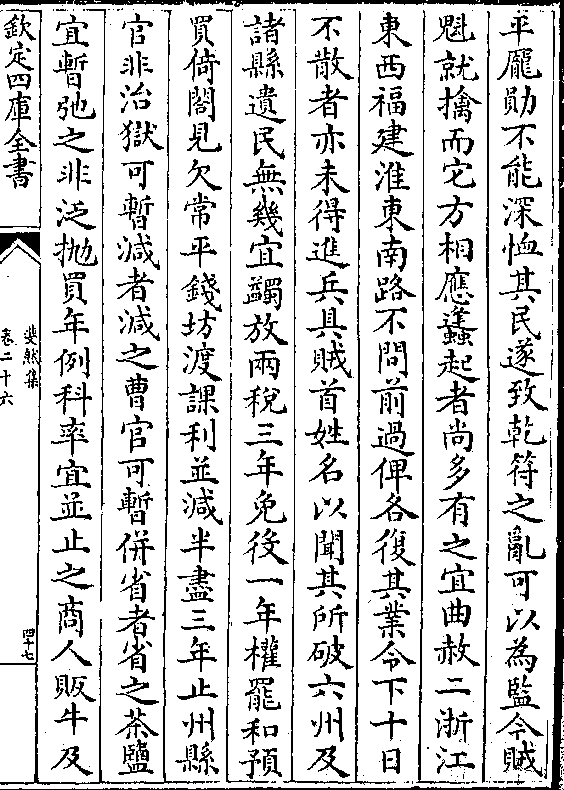 平龐勛不能深恤其民遂致乾符之亂可以為監今賊
魁就擒而它方相應蠭起者尚多有之宜曲赦二浙江
東西福建淮東南路不問前過俾各復其業令下十日
不散者亦未得進兵具賊首姓名以聞其所破六州及
諸縣遺民無幾宜蠲放兩稅三年免役一年權罷和預
買倚閣見欠常平錢坊渡課利並減半盡三年止州縣
官非治獄可暫減者減之曹官可暫併省者省之茶鹽
宜暫弛之非泛拋買年例科率宜並止之商人販牛及
欽定四庫全書
斐然集
卷二十六
四十七